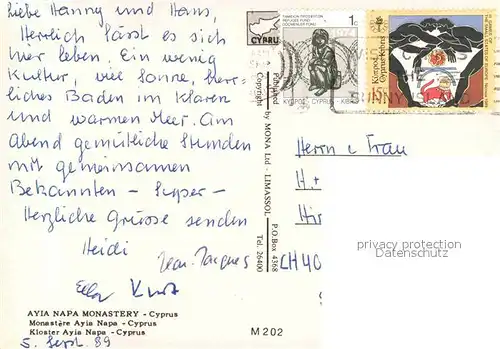 Liebe Hanny und Hans,
Herrlich lässt es sich
hier leben. Ein wenig
Kultur, viel Sonne, herr-
liches Baden im klaren
und warmen Meer. Am
Abend gemütliche Stunden
mit gemeinsamen
Bekannten - super -
Herzliche Grüsse senden
Heidi
Jean-Jacques
Kurt
AYIA NAPA MONASTERY - Cyprus
Monastère Ayia Napa - Cyprus
Kloster Ayia Napa - Cyprus
5. Sept. 89
M 202
Published
Copyright by MONA Ltd - LIMASSOL
P.O.Box 4368
Tel. 26400
CYPRU
REFUGEE FUND
1c
1974
ΚΥΠΡΟΣ - CYPRUS - KIBRIS
Κύπρος
Cyprus Kıbrıs
15
SUNNY ISLAND
Herrn u Frau
H.
CH 40
privacy protection
Datenschutz